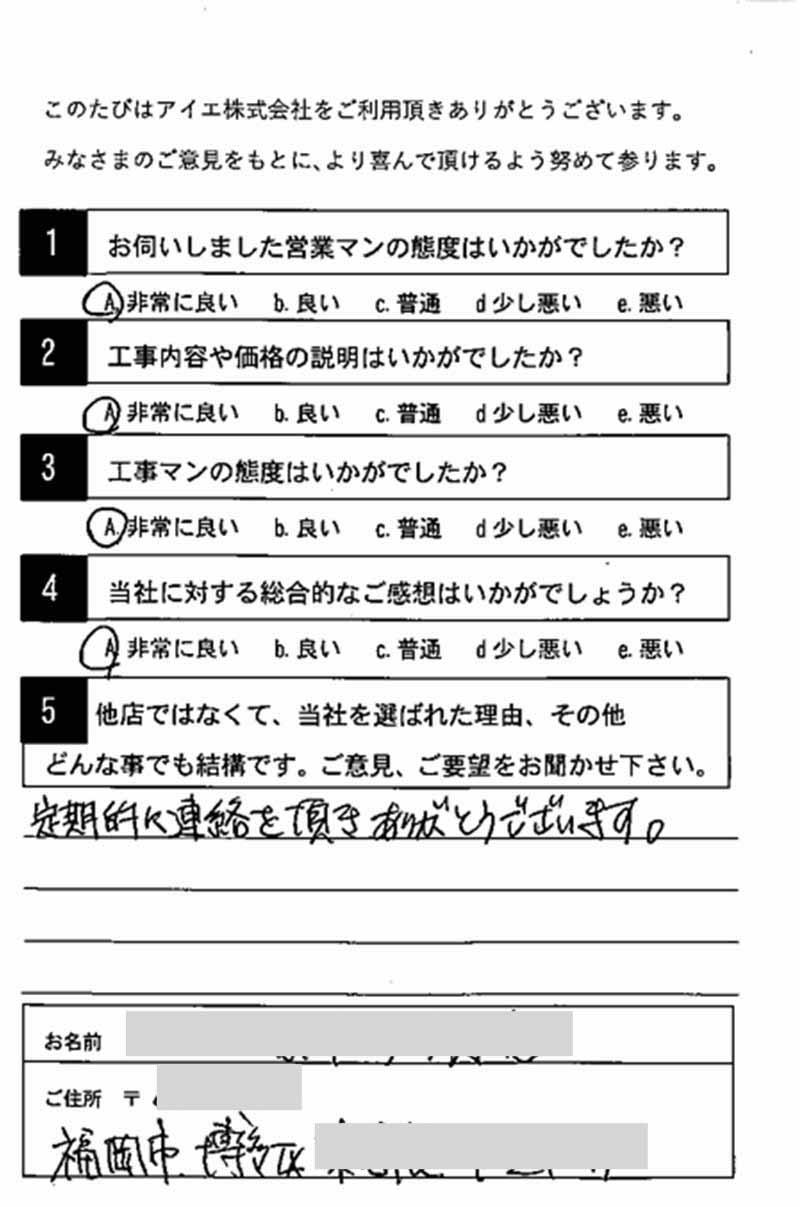 このたびはアイエ株式会社をご利用頂きありがとうございます。
みなさまのご意見をもとに、より喜んで頂けるよう努めて参ります。
1 お伺いしました営業マンの態度はいかがでしたか？
A. 非常に良い b. 良い c. 普通 d 少し悪い e. 悪い
2 工事内容や価格の説明はいかがでしたか？
A. 非常に良い b. 良い c. 普通 d 少し悪い e. 悪い
3 工事マンの態度はいかがでしたか？
A. 非常に良い b. 良い c. 普通 d 少し悪い e. 悪い
4 当社に対する総合的なご感想はいかがでしょうか？
A. 非常に良い b. 良い c. 普通 d 少し悪い e. 悪い
5 他店ではなくて、当社を選ばれた理由、その他
どんな事でも結構です。ご意見、ご要望をお聞かせ下さい。
定期的に連絡を頂きありがとうございます。
お名前
ご住所 〒
福岡市 博多区